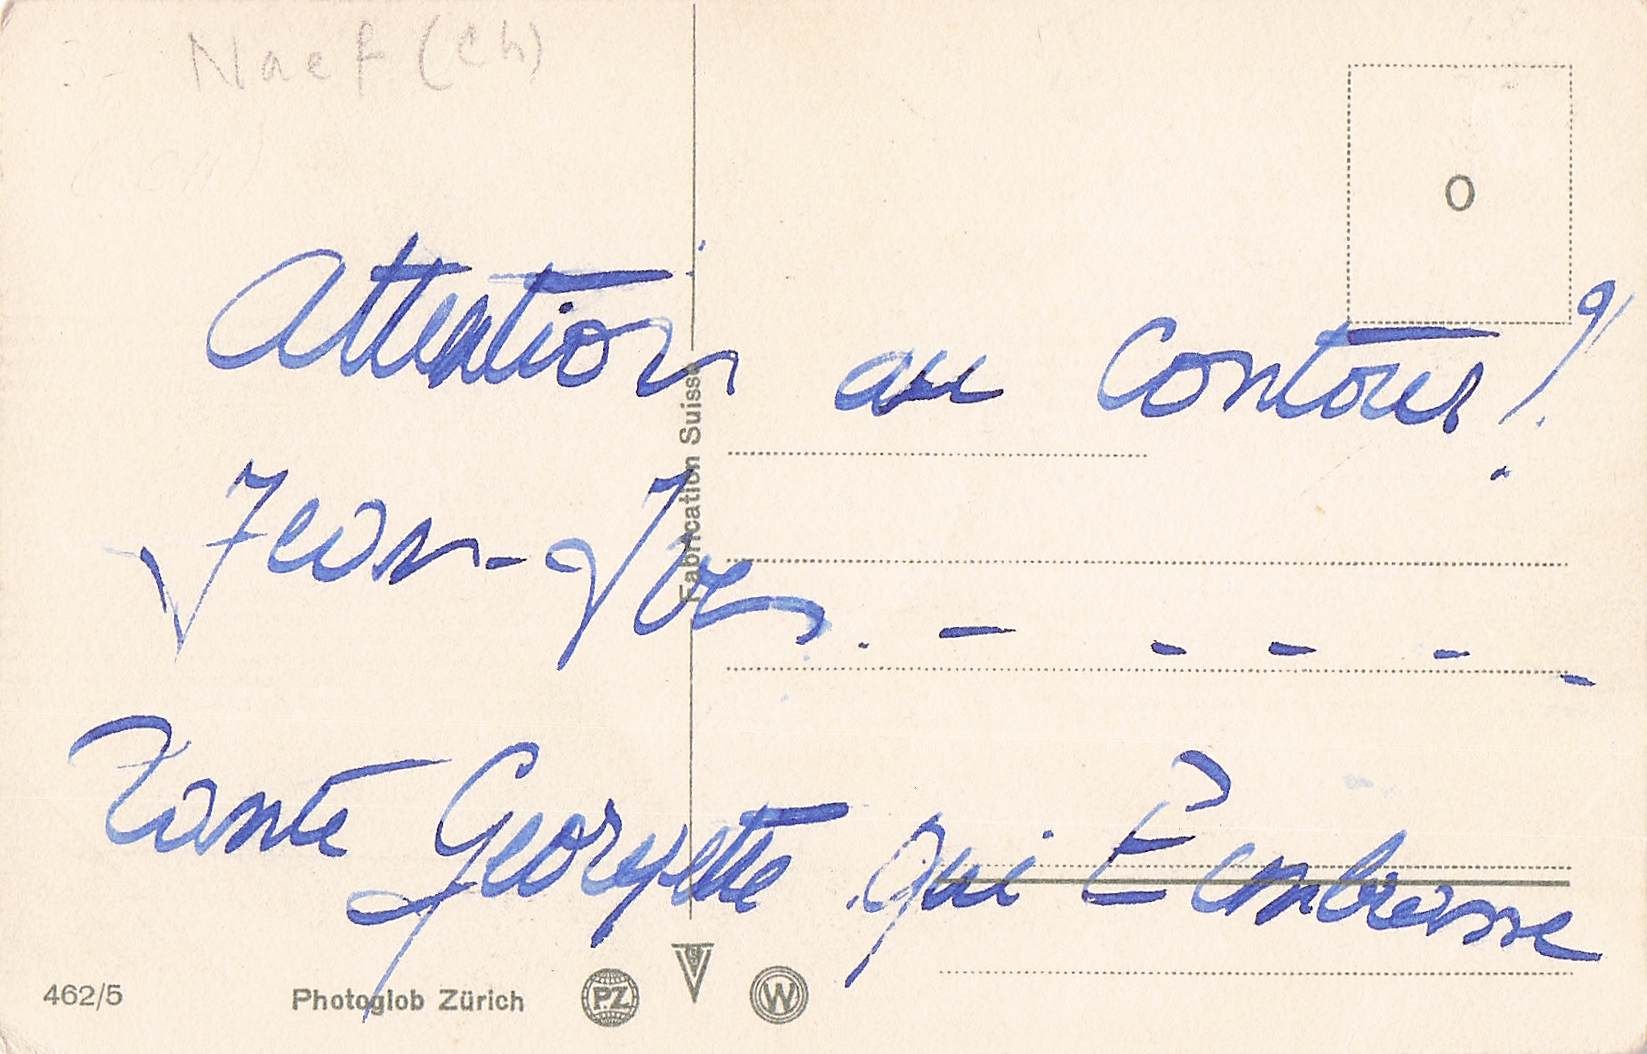 Naef (Ch)
O
Attention au Contour!
Jean-Jou. - - - - -
Tante Georgette qui t'embrasse
Fabrication Suisse
462/5
Photoglob Zürich
P.Z
W